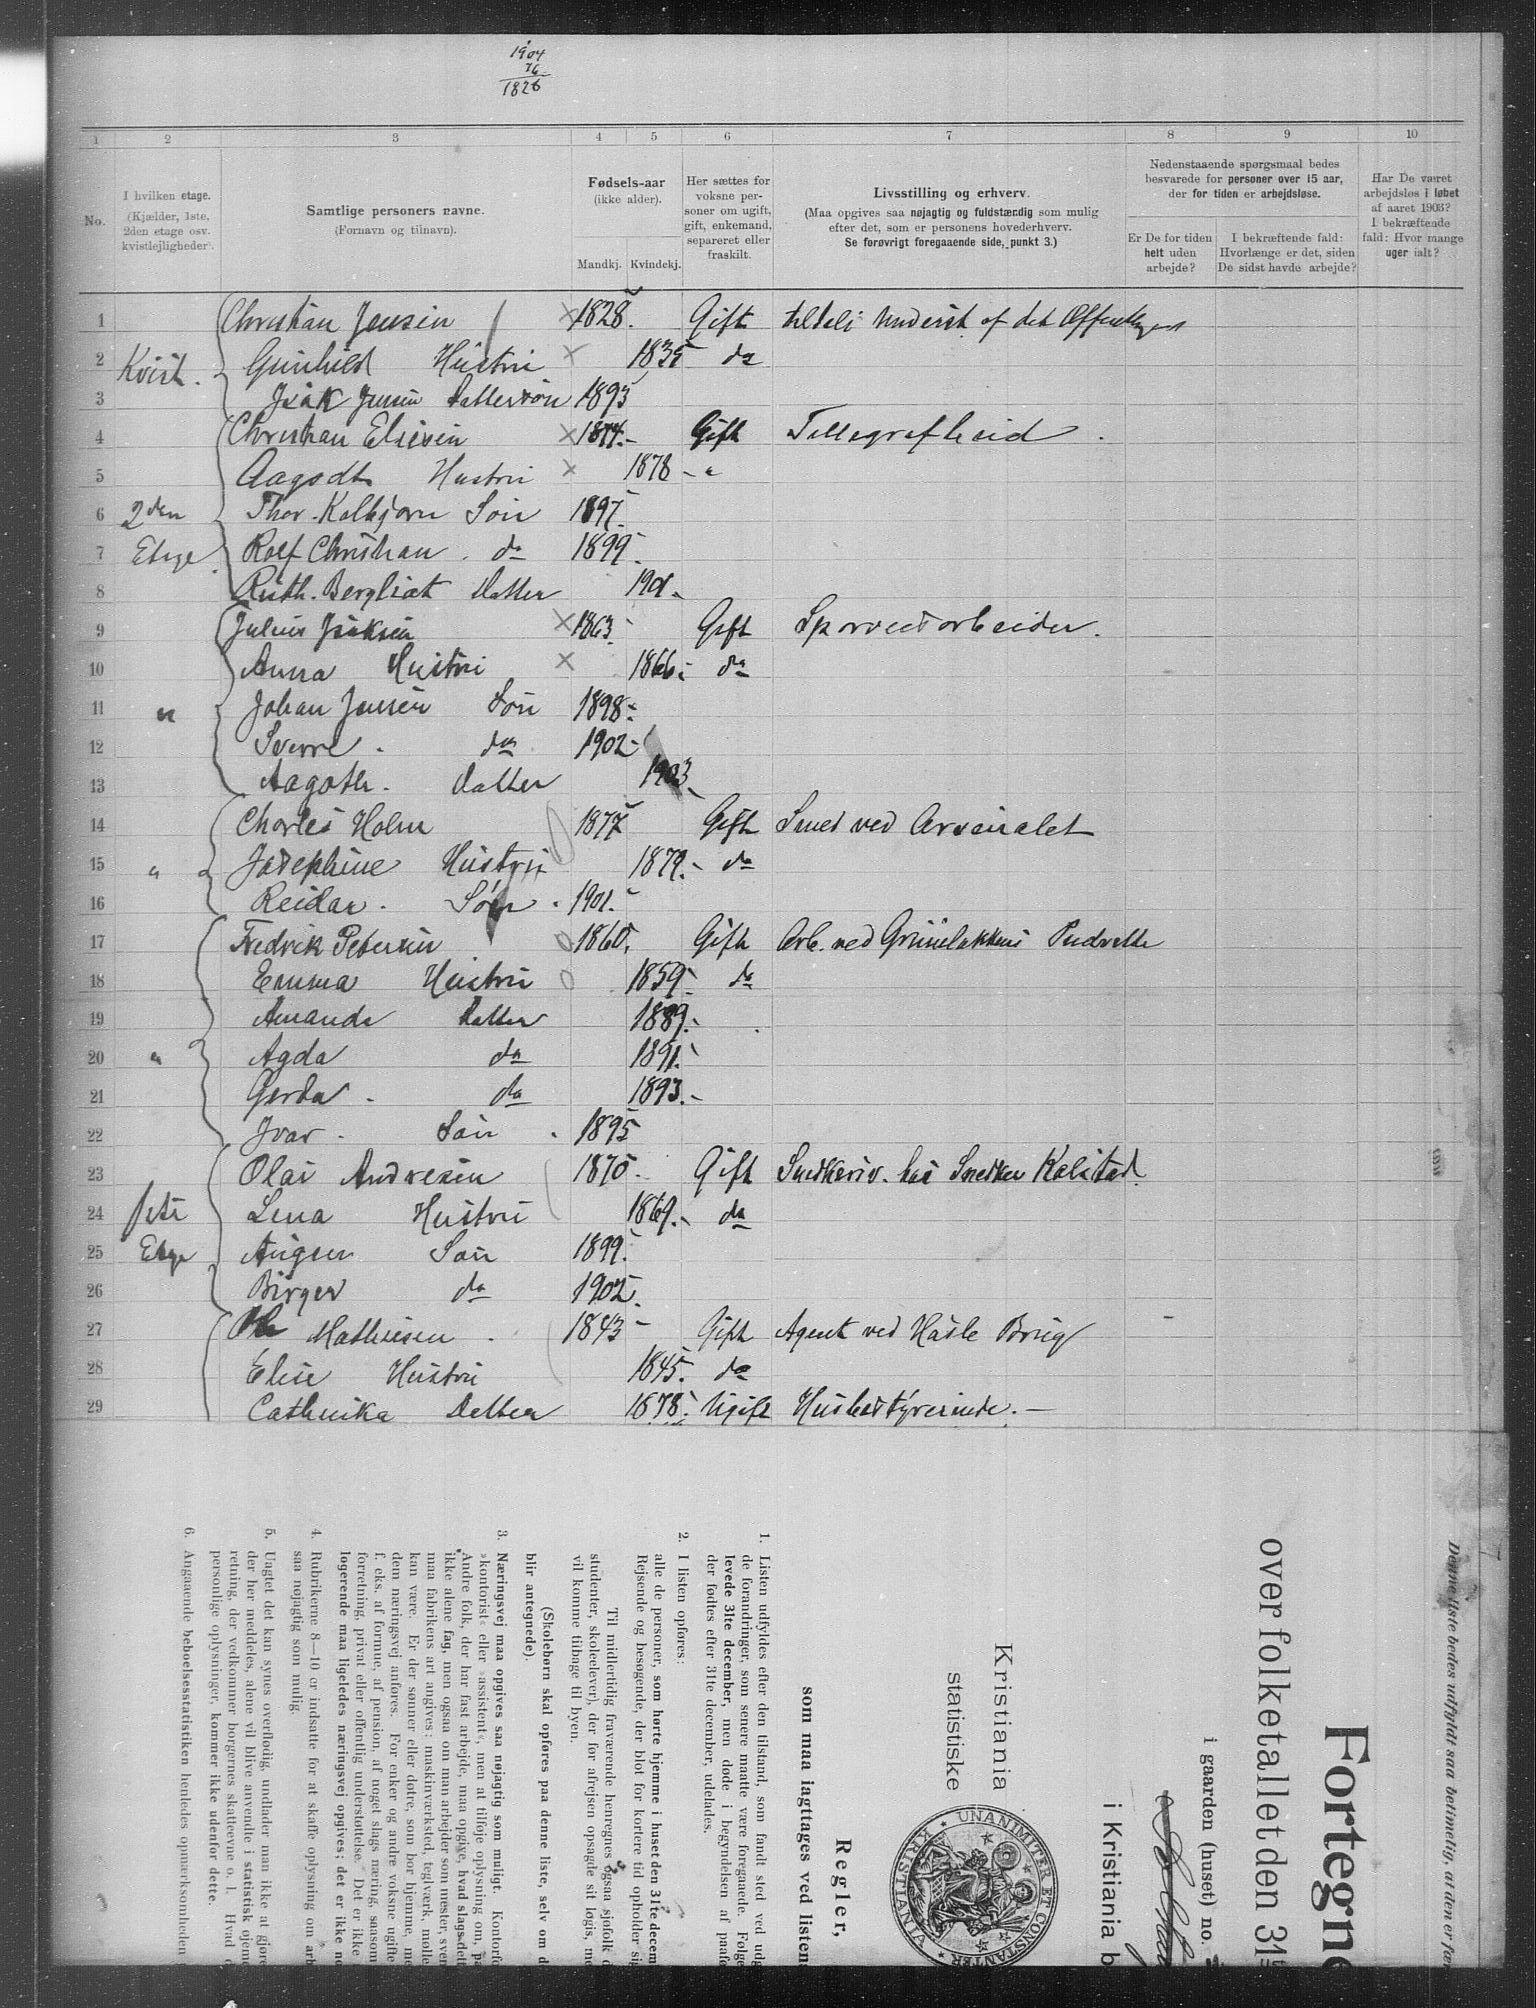 1904
76
1828
1 2 3 4 5 6 7 8 9 10
No.
I hvilken etage.
(Kjælder, 1ste,
2den etage osv.
kvistleiligheder).
Samtlige personers navne.
(Fornavn og tilnavn).
Fødsels-aar
(ikke alder).
Mandkj. Kvindekj.
Her sættes for
voksne per-
soner om ugift,
gift, enkemand,
separeret eller
fraskilt.
Livsstilling og erhverv.
(Maa opgives saa nøjagtig og fuldstændig som mulig
efter det, som er personens hovederhverv.
Se forøvrigt foregaaende side, punkt 3.)
Nedenstaaende spørgsmaal bedes
besvarede for personer over 15 aar,
der for tiden er arbejdsløse.
Er De for tiden
helt uden
arbejde?
I bekræftende fald:
Hvorlænge er det, siden
De sidst havde arbejde?
Har De været
arbejdsløs i løbet
af aaret 1903?
I bekræftende
fald: Hvor mange
uger ialt?
1 Christian Jensen 1828. Gift af det Offentlige
2 Kvist. Gunhild Hustru 1835 do
3 Isak Jensen Dattersøn 1893
4 Christian Elisen 1874.- Gift
5 Aagodt Hustru 1878 - "
6 2den Thor. Kolbjørn Søn 1897.
7 Etage. Rolf Christian. do 1899.
8 Ruth. Bergliot Datter 1901.
9 Julius Isaksen 1863. Gift Sporveisarbeider.
10 Anna Hustru 1866. do
11 " Johan Jensen Søn 1898.
12 Sverre. do 1902
13 Aagoth. Datter 1903.
14 Charles Holm 1877 Gift Smed ved Arsenalet
15 " Josephine Hustru 1879. do
16 Reidar. Søn. 1901.
17 Fredrik Petersen 1860. Gift Arb. ved Grüneløkkens Pudrette
18 Emma Hustru 1859. do
19 Amanda Datter 1889.
20 " Agda do 1891.
21 Gerda. do 1893.
22 Ivar. Søn. 1895
23 Olai Andresen 1870. Gift Snedkersv. hos Snedker Kolstad.
24 1ste Lena Hustru 1869. do
25 Etage Søn 1899.
26 Birger do 1902.
27 Ole Mathisen. 1843 Gift Agent ved Hasle Brug -
28 Elise Hustru 1845. do
29 Cathrika Datter 1878. Ugift Husbestyrerinde. -
Denne liste bedes udfyldt saa betimelig, at den er fær
Fortegne
over folketallet den 31t
i gaarden (huset) no.
i Kristiania b
Kristiania
statistiske
UNANIMITER ET CONSTANTER
KRISTIANIA
Regler,
som maa iagttages ved listens
1. Listen udfyldes efter den tilstand, som fandt sted ved udg
de forandringer, som senere maatte være foregaaede. Følge
levede 31te december, men døde i begyndelsen af paafø
der fødtes efter 31te december, udelades.
2. I listen opføres:
alle de personer, som hørte hjemme i huset den 31te decem
Rejsende og besøgende, der blot for kortere tid opholder sig
Til midlertidig fraværende henregnes ogsaa sjøfolk o
studenter, skoleelever), der før afrejsen opsagde sit logis, me
vil komme tilbage til byen.
(Skolebørn skal opføres paa denne liste, selv om d
blir antegnede).
3. Næringsvej maa opgives saa nøjagtig som muligt. Kontorfo
»kontorist« eller »assistent«, men at tilføje oplysning om, pa
Andre folk, der har fast arbejde, maa opgive, hvad slags det
ikke alene fag, men ogsaa om man arbejder som mester, sven
maa fabrikens art angives: maskinværksted, teglværk, mølle
kan være. Er der sønner eller døtre, som bor hjemme, me
dem næringsvej anføres. For enker og andre voksne ugifte
f. eks. af formue, af pension, af noget slags næring, saasom
forretning, privat eller offentlig understøttelse. Det er ikke
logerende maa ligeledes næringsvej opgives; det er ikke no
4. Rubrikerne 8—10 er indsatte for at skaffe oplysning om arb
saa nøjagtig som mulig.
5. Uagtet det kan synes overflødig, undlader man ikke at gjøre
der her meddeles, alene vil blive anvendte i statistisk øjeme
retning, der vedkommer borgernes skatteevne o. l. Hvad d
personlige oplysninger, kommer ikke udenfor dette.
6. Angaaende beboelsesstatistiken henledes opmærksomheden